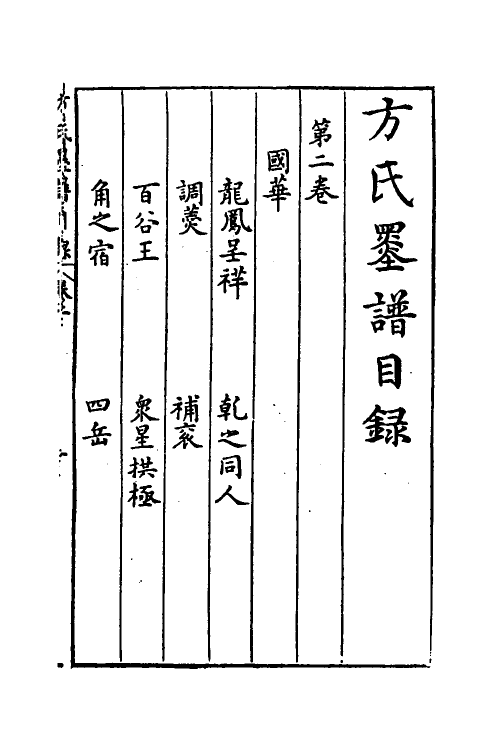 方氏墨譜目録
第二卷
國華
龍鳳呈祥　乾之同人
調羹　補衮
百谷王　衆星拱極
角之宿　四岳